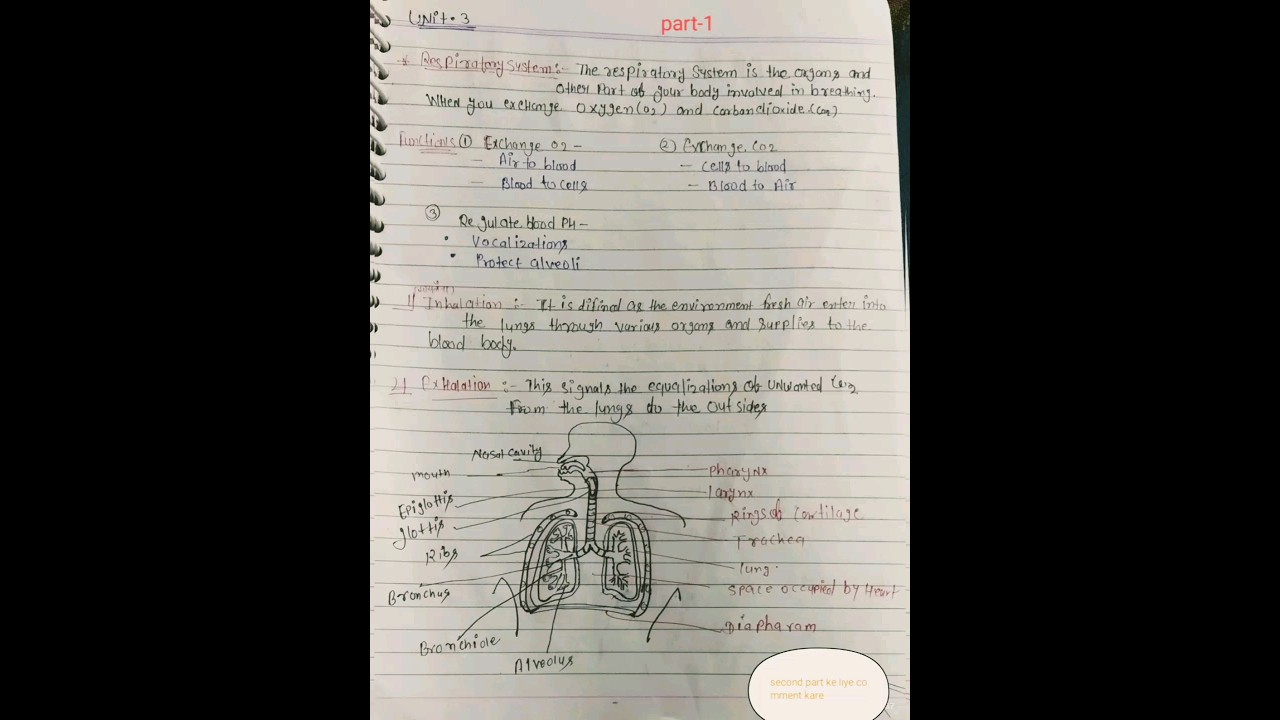 Unit. 3
part-1
* Respiratory System:- The respiratory System is the organs and
other Part of your body involved in breathing.
When you exchange oxygen(O2) and carbandioxide(CO2)
Functions ① Exchange O2 -
- Air to blood
- Blood to cells
② Exchange CO2
- cells to blood
- Blood to Air
③ Regulate blood PH-
• Vocalizations
• Protect alveoli
1) Inhalation :- It is difined as the environment fresh air enter into
the lungs through various organs and supplies to the
blood body.
2) Exhalation :- This signals the equalizations of unwanted CO2
From the lungs do the out sides
Nasal cavity
mouth
Epiglottis
glottis
Ribs
Bronchus
Bronchiole
Alveolus
Pharynx
larynx
Rings of Cortilage
Trachea
lung.
space occupied by Heart
Diapharam
second part ke liye co
mment kare